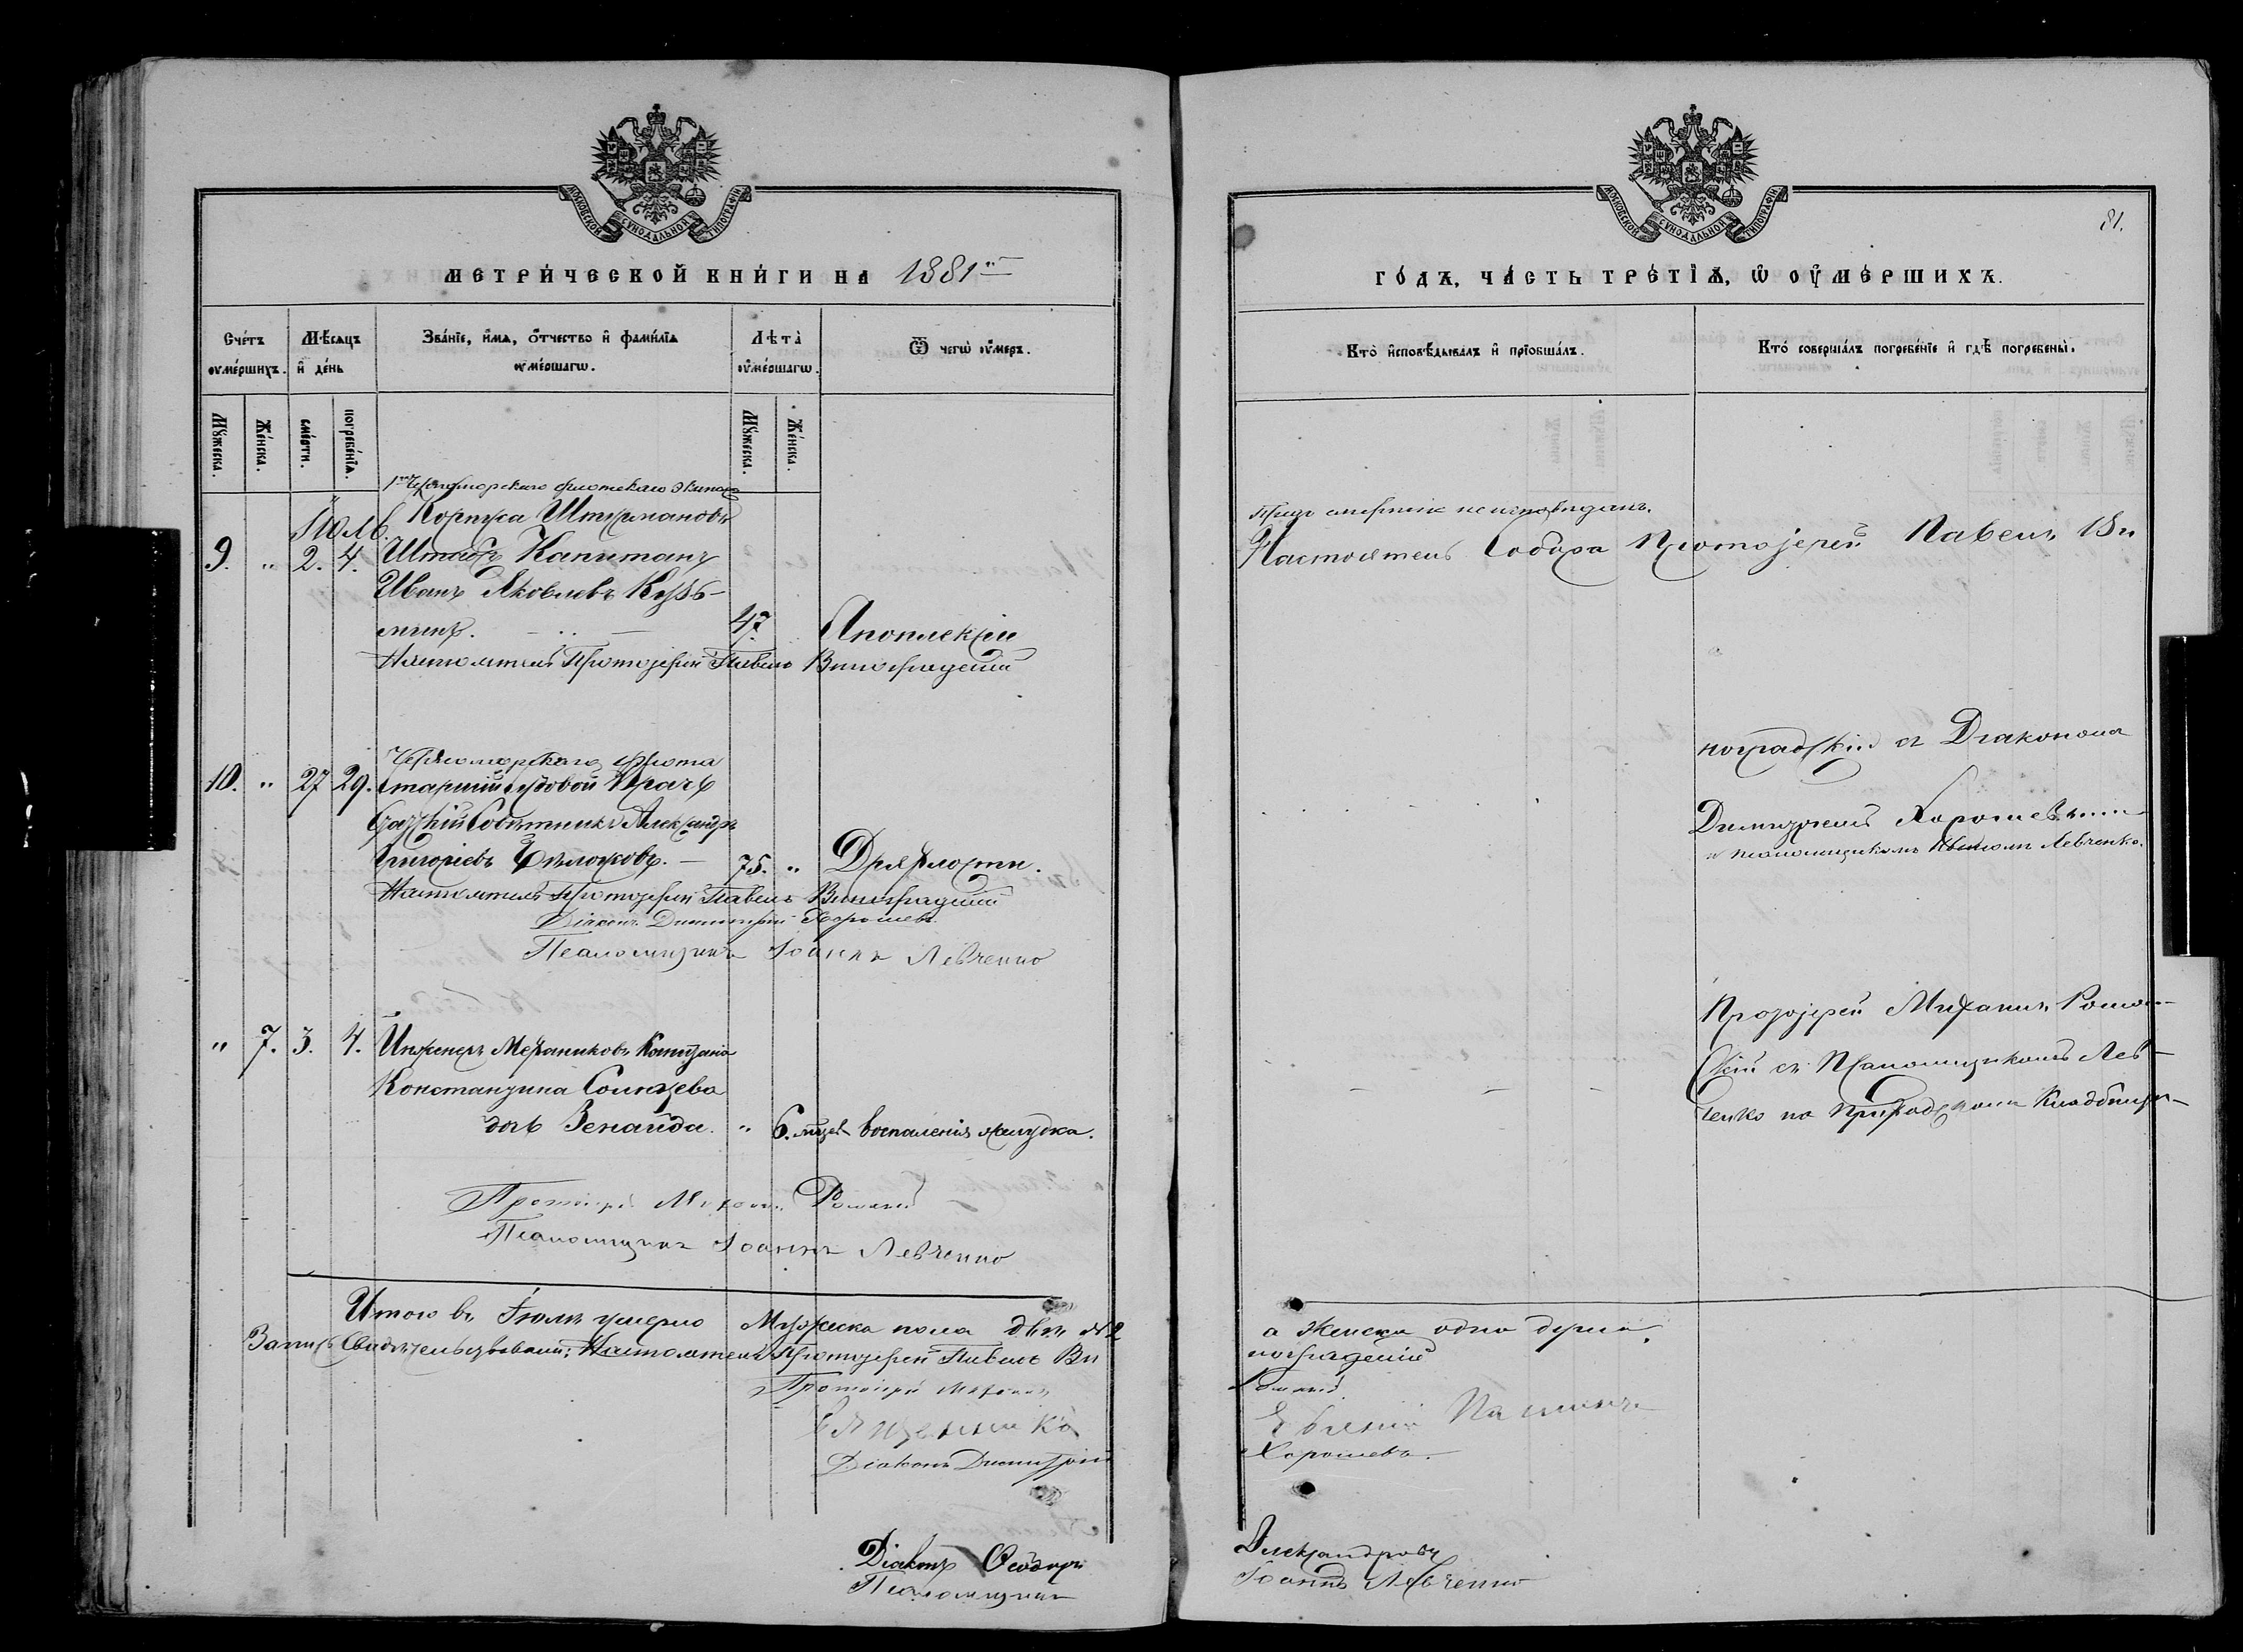 МОСКОВСКОЙ СѴНОДАЛЬНОЙ ТИПОГРАФІИ
МЕТРИ́ЧЕСКОЙ КНИ́ГИ НА 1881й
Сче́тъ ѹме́ршихъ.
Мѣ́сѧцъ и҆ де́нь
Зва́нїе, и҆́мѧ, ѻ҆́тчество и҆ фами́лїѧ ѹме́ршагѡ.
Лѣ́та ѹ҆ме́ршагѡ.
Ѿ чегѡ̀ ѹ҆́меръ.
Мꙋ́жеска.
Же́нска.
сме́рти.
погребе́нїѧ.
Мꙋ́жеска.
Же́нска.
1го Черноморскаго флотскаго Экипажа
Іюль. Корпуса Штурмановъ
9. " 2. 4. Штабсъ Капитанъ
Иванъ Яковлевъ Кузь-
минъ. 47. Апоплексіи
Настоятель Протоіерей Павелъ Виноградскій
Черноморскаго флота
10. " 27 29. Старшій Судовой Врачъ
Статскій Совѣтникъ Александръ
Григоріевъ 75. " Дряхлости.
Настоятель Протоіерей Павелъ Виноградскій
Діаконъ Димитрій Хорошевъ
Псаломщикъ Іоаннъ Левченко
" 7. 3. 4. Инженеръ Механиковъ Капитана
Константина Солнцева
дочь Зенаида. " 6. мцевъ воспаленія желудка.
Протоіерей Михаилъ Романскій
Псаломщикъ Іоаннъ Левченко
Итого въ Іюлѣ умерло Мужеска пола двѣ № 2
Запись Свидѣтельствовали: Настоятель Протоіерей Павелъ Ви
Протоіерей Михаилъ
Священникъ
Діаконъ Димитрій
Діаконъ Ѳеодоръ
Псаломщикъ
81.
МОСКОВСКОЙ СѴНОДАЛЬНОЙ ТИПОГРАФІИ
ГО́ДЪ, ЧА́СТЬ ТРЕ́ТІѦ, Ѡ ОУ҆МЕ́РШИХЪ.
Кто̀ и҆сповѣ́дывалъ и҆ прїобща́лъ.
Кто́ соверша́лъ погребе́нїе и҆ гдѣ̀ погребены̀.
Предъ смертію не исповѣданъ.
Настоятель Собора Протоіерей Павелъ Ви
ноградскій съ Діакономъ
Димитріемъ Хорошевымъ
и псаломщикомъ Іваномъ Левченко.
Протоіерей Михаилъ Роман-
скій съ Псаломщикомъ Лев-
ченко на Приходскомъ Кладбищѣ
а Женска одна душа.
ноградскій
Романскій
Евгеній
Хорошевъ.
Александровъ
Іоаннъ Левченко